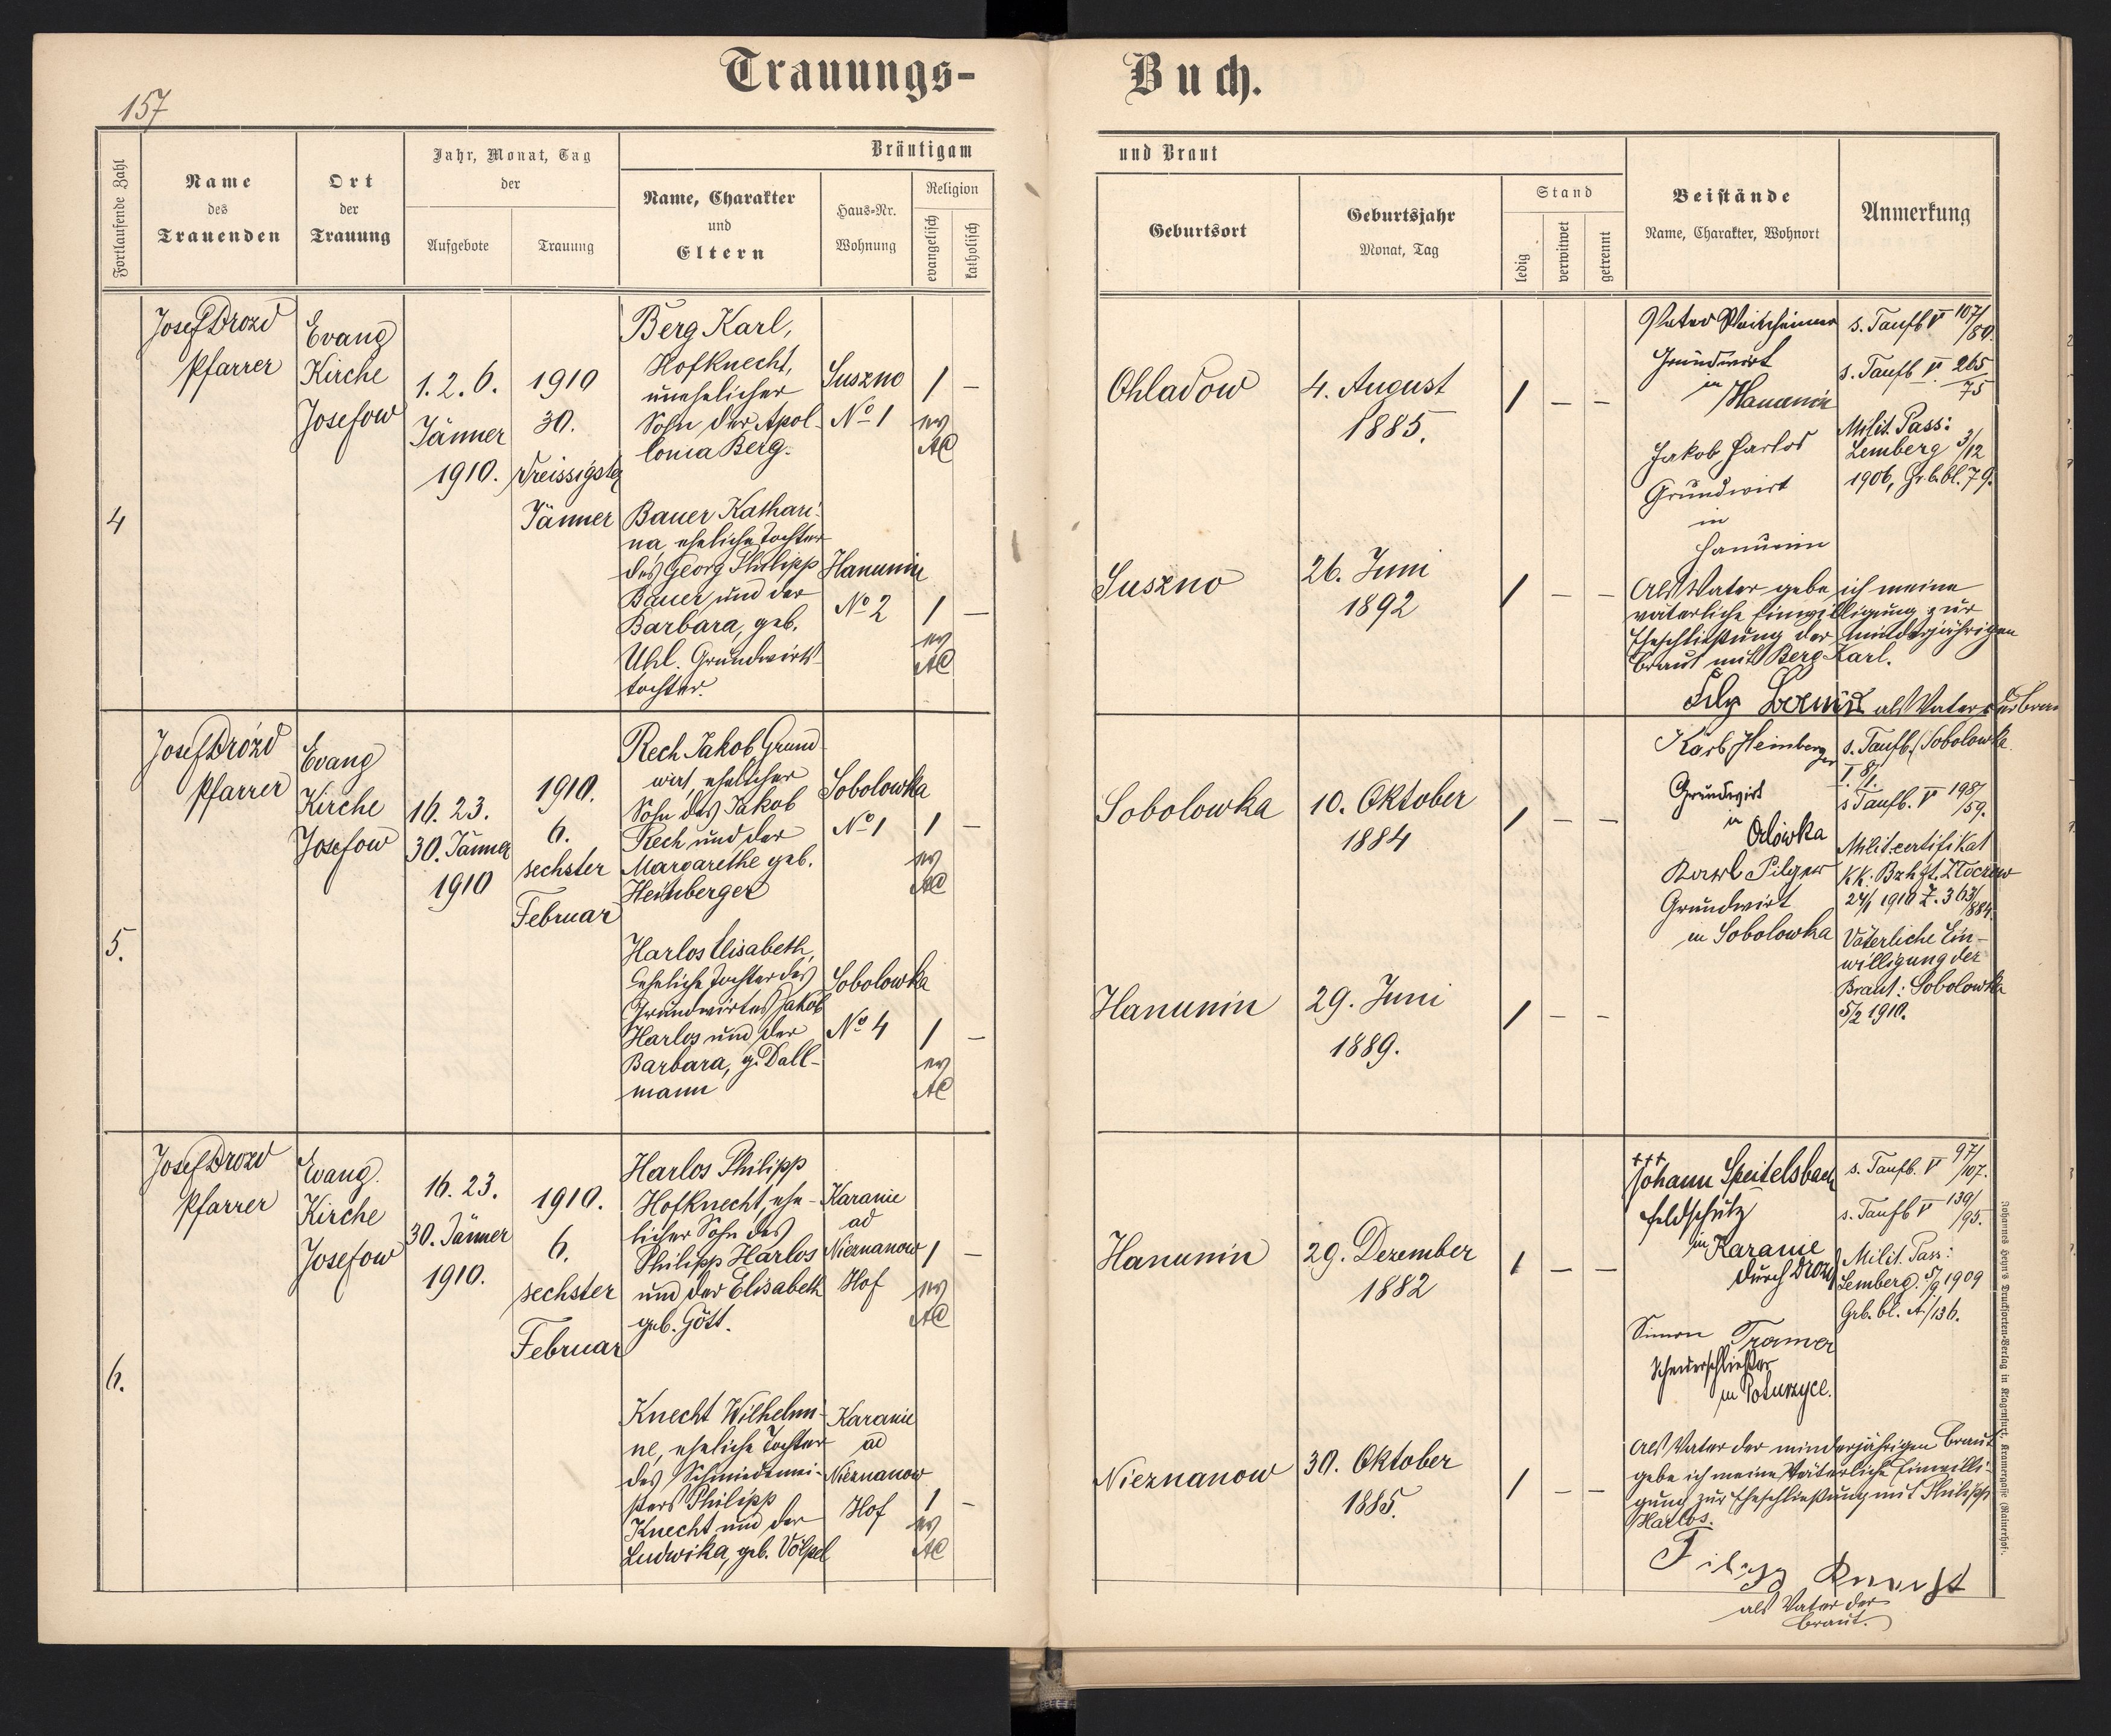 Trauungs-
Buch.
157
Fortlaufende Zahl
Name
des
Trauenden
Ort
der
Trauung
Jahr, Monat, Tag
der
Aufgebote
Trauung
Bräutigam
Name, Charakter
und
Eltern
Haus-Nr.
Wohnung
Religion
evangelisch
katholisch
und Braut
Geburtsort
Geburtsjahr
Monat, Tag
Stand
ledig
verwitwet
getrennt
Beistände
Name, Charakter, Wohnort
Anmerkung
4
Josef Drozd
Pfarrer
Evang
Kirche
Josefow
1. 2. 6.
Jänner
1910.
1910
30.
dreissigster
Jänner
Berg Karl,
Hofknecht,
unehelicher
Sohn der Apol-
lonia Berg.
Suszno
No 1
1 –
ev
AC
Bauer Kathari-
na, eheliche Tochter
des Georg Philipp
Bauer und der
Barbara, geb.
Uhl. Grundwirts-
tochter.
Hanunin
No 2
1 –
ev
AC
Ohladow
4. August
1885.
1 – –
Suszno
26. Juni
1892
1 – –
Grundwirt
in
Hanunin
Jakob Harlos
Grundwirt
in
Hanunin
s. Taufb V 107/80.
s. Taufb V. 265/75
Milit. Pass:
Lemberg 3/12
1906, Grbbl. 79.
Als Vater gebe ich meine
väterliche Einwilligung zur
Eheschließung der minderjährigen
Braut mit Berg Karl.
als Vater der Braut
5.
Josef Drozd
Pfarrer
Evang
Kirche
Josefow
16. 23.
30. Jänner
1910
1910.
6.
sechster
Februar
Rech Jakob Grund-
wirt, ehelicher
Sohn des Jakob
Rech und der
Margarethe geb.
Heinberger
Sobolowka
No 1
1 –
ev
AC
Harlos Elisabeth,
eheliche Tochter des
Grundwirtes Jakob
Harlos und der
Barbara, g. Dall-
mann
Sobolowka
No 4
1 –
ev
AC
Sobolowka
10. Oktober
1884
1 – –
Hanunin
29. Juni
1889.
1 – –
Karl Heinberger
Grundwirt
in
Orlowka
Karl Pilger
Grundwirt
in Sobolowka
s. Taufb. Sobolowka
I 8/1.
s Taufb. V 198/59.
Milit. certifikat
KK. Bzhpt. Zloczow
24/1 1910 Z. 363/884.
Väterliche Ein-
willigung der
Braut: Sobolowka
5/2 1910.
6.
Josef Drozd
Pfarrer
Evang.
Kirche
Josefow
16. 23.
30. Jänner
1910.
1910.
6.
sechster
Februar
Harlos Philipp
Hofknecht, ehe-
licher Sohn des
Philipp Harlos
und der Elisabeth
geb. Gött.
Karanie
ad
Nieznanow
Hof
1 –
ev
AC
Knecht Wilhelmi-
ne, eheliche Tochter
des Schmiedemei-
sters Philipp
Knecht und der
Ludwika, geb. Völpel
Karanie
ad
Nieznanow
Hof
1 –
ev
AC
Hanunin
29. Dezember
1882
1 – –
Nieznanow
30. Oktober
1885.
1 – –
+++
Johann Speitelsbach
Feldschütz
in Karanie
durch Drozd
Simon Tramer
in Poturzyce.
s. Taufb. V 97/107.
s. Taufb V 139/95.
Milit. Pass:
Lemberg. 5/9 1909
Grb. bl. A./136.
Als Vater der minderjährigen Braut
gebe ich meine Väterliche Einwilli-
gung zur Eheschließung mit Philipp
Harlos.
Filipp Knecht
als Vater der
Braut.
Johannes Heyn's Drucksorten-Verlag in Klagenfurt, Kramergasse (Rainerhof).